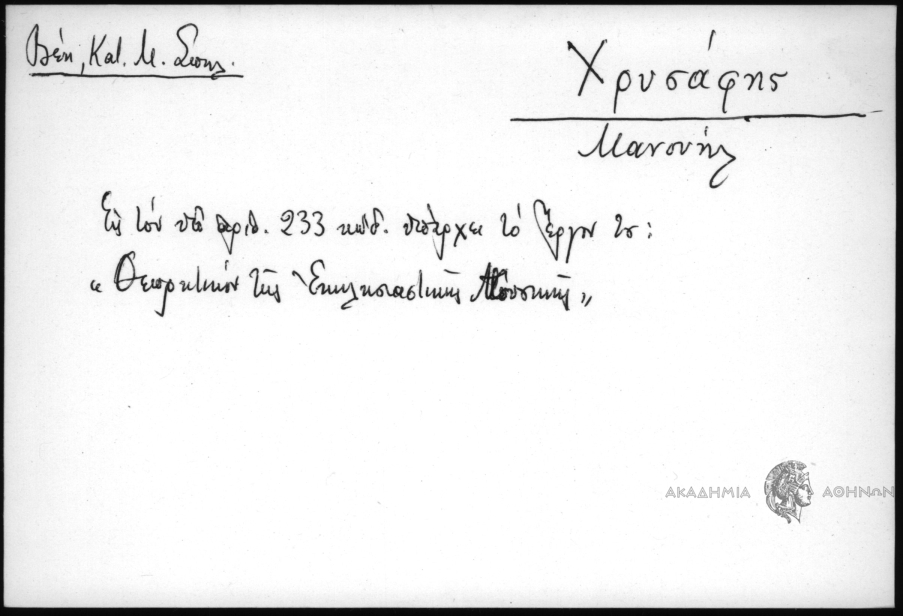 Βέη, Κατ. Μ.
Χρυσάφης
Μανουήλ
Εἰς τὸν ὑπ' ἀριθ. 233 κώδ. ὑπάρχει τὸ ἔργον του:
« Θεωρητικὸν τῆς Ἐκκλησιαστικῆς Μουσικῆς »
ΑΚΑΔΗΜΙΑ ΑΘΗΝΩΝ